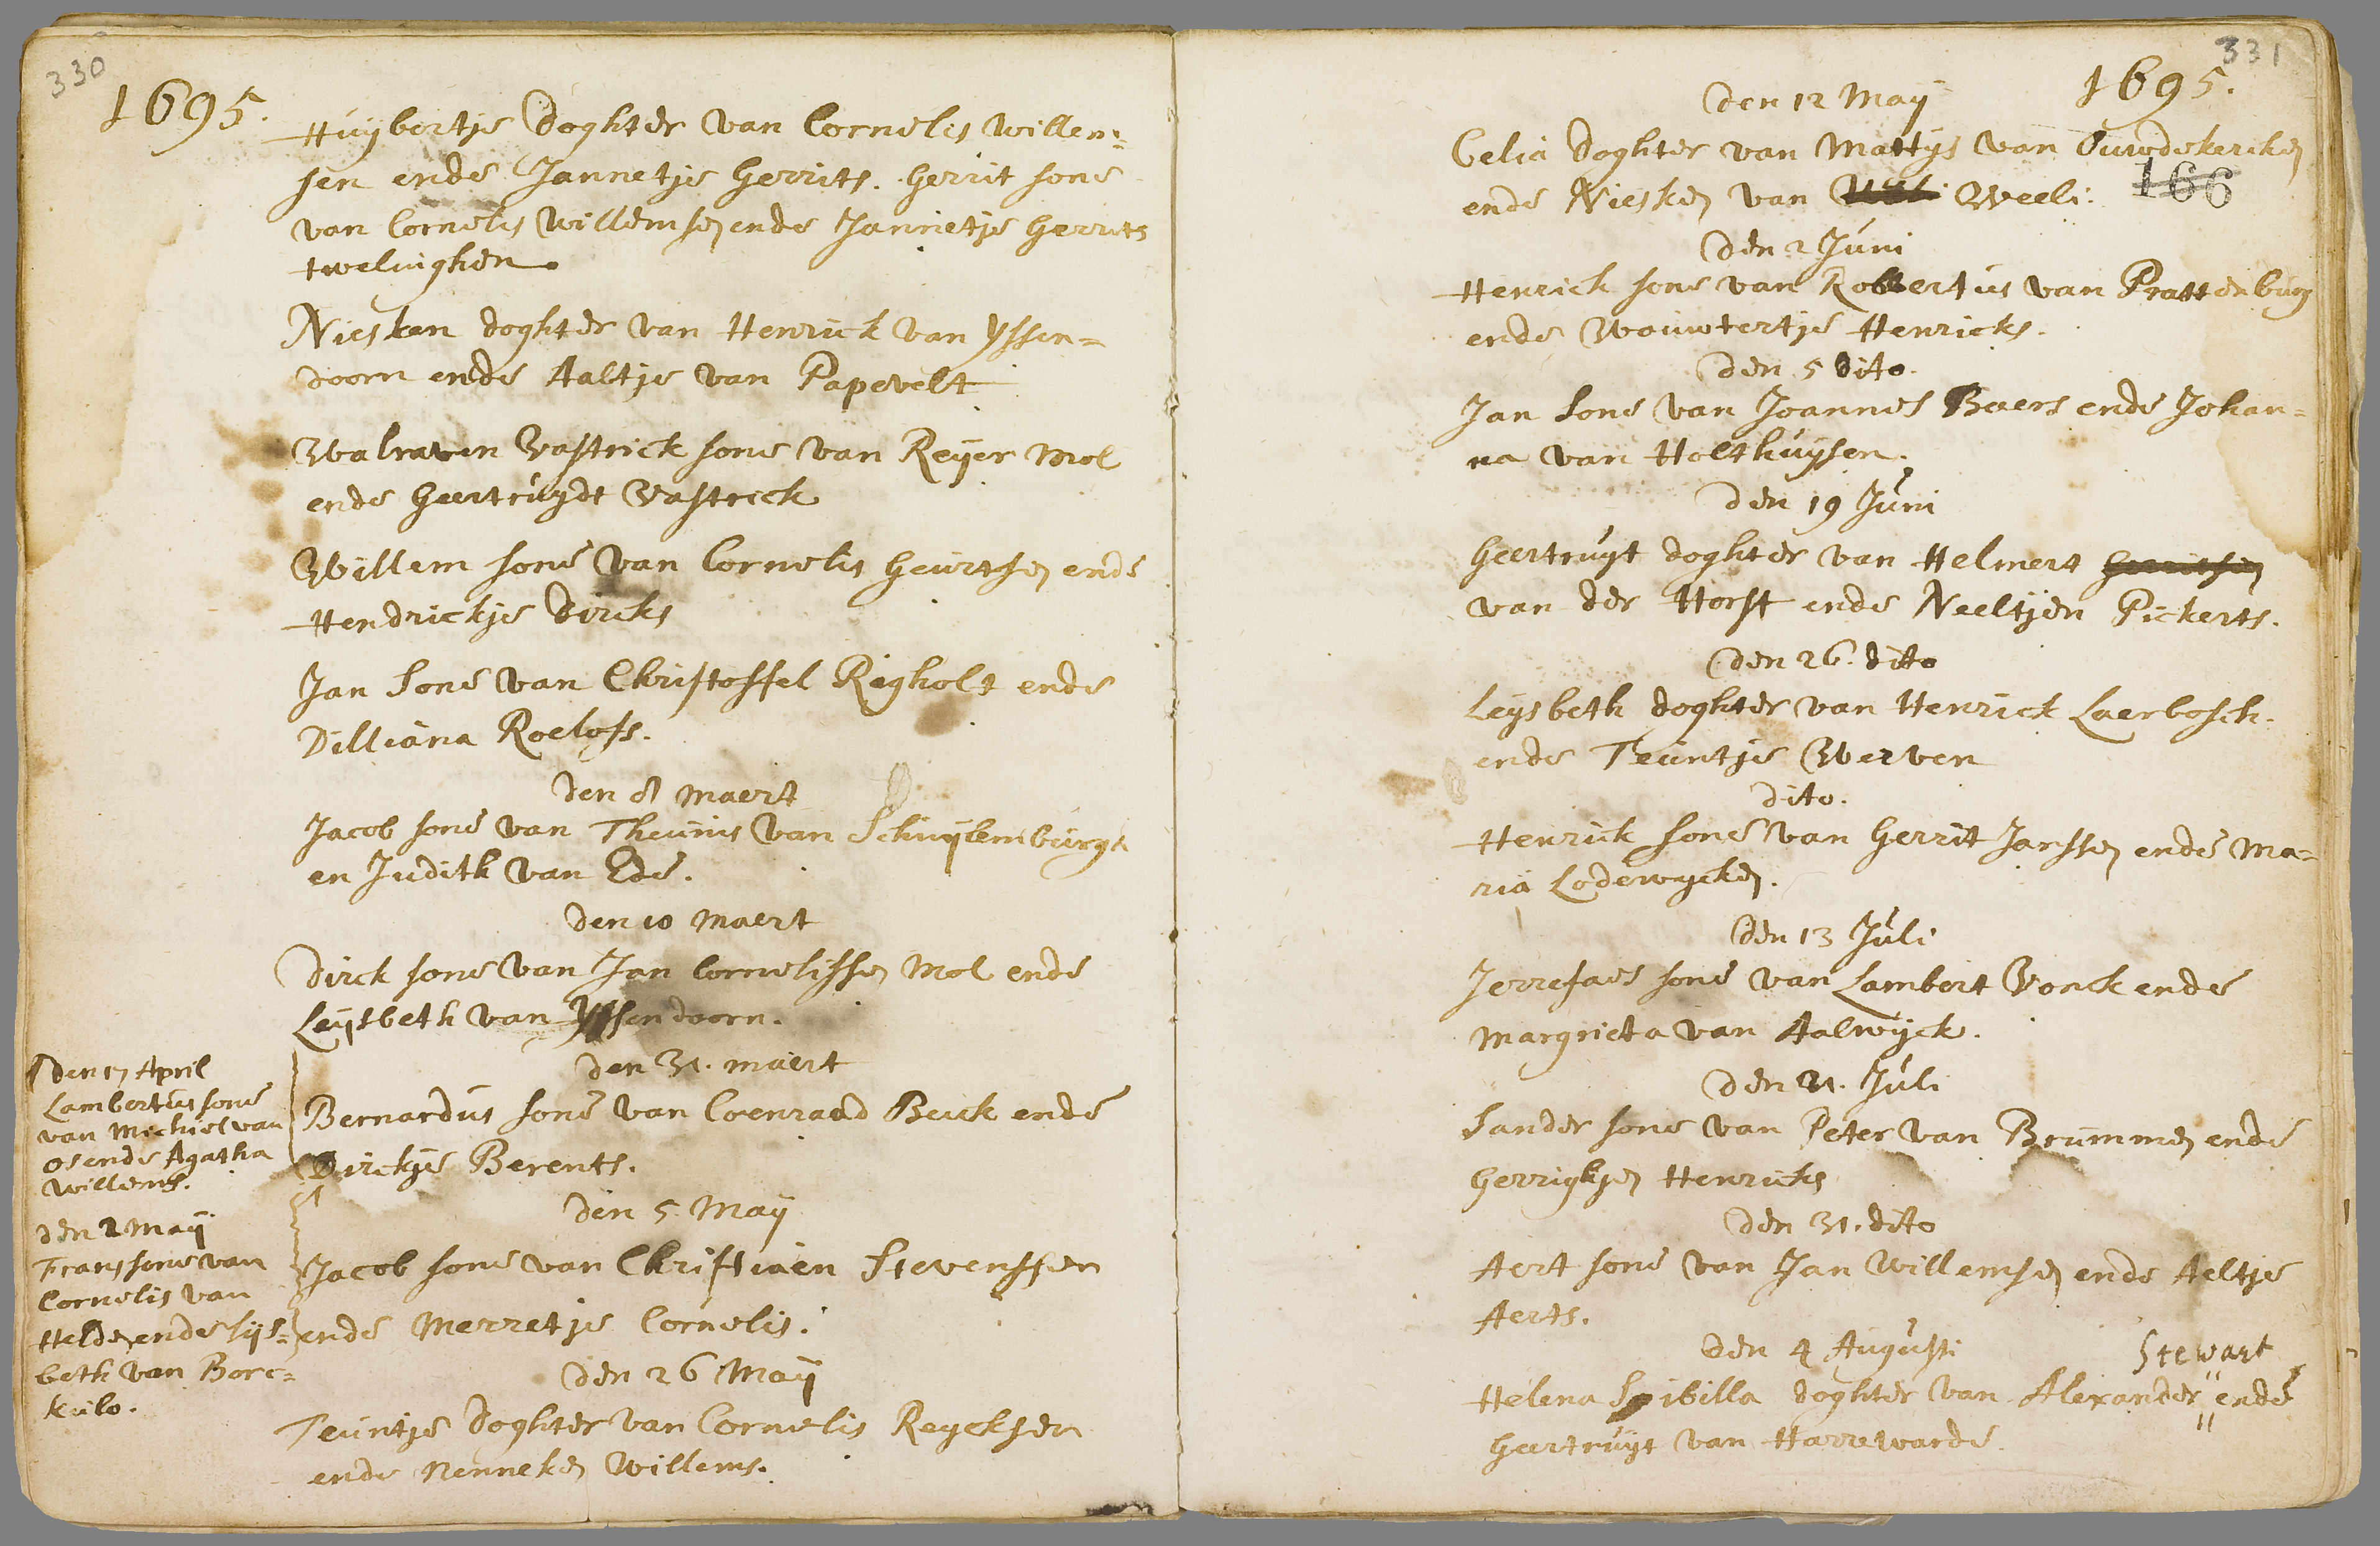 330
1695.
Huybertje doghter van Cornelis Willem=
sen ende Jannetje Gerrits. Gerrit sone
van Cornelis Willemsen ende Jannetje Gerrits
twelinghen.
Niesken doghter van Henrick van Yssen=
doorn ende Aaltje van Papevelt
Walraven Vastrick sone van Reyer Mol
ende Geertruydt Vastrick
Willem sone van Cornelis Geurtsen ende
Hendrickje Dircks
Jan sone van Christoffel Righolt ende
Dilliana Roelofs.
den 8 maert
Jacob sone van Theunis van Schuylemburgh
en Judith van Ede.
den 10 maert
Dirck sone van Jan Cornelissen Mol ende
Leysbeth van Yssendoorn.
den 31. maert
Bernardus sone van Coenraad Beck ende
Dirckje Berents.
den 5 May
Jacob sone van Christiaen Stevenssen
ende Merretje Cornelis.
den 26 May
Teuntje doghter van Cornelis Reycksen
ende Nenneken Willems.
den 17 April
Lambertus sone
van Michiel van
Os ende Agatha
Willems.
den 2 May
Frans sone van
Cornelis van
Helden ende Lijs=
beth van Bore=
kulo.
331
1695.
166
den 12 May
Celia doghter van Mattys van Ouwdekercken
ende Niesken van Weeli:
den 2 Juni
Henrick sone van Robbertus van Prattenburg
ende Wouwtertje Henricks.
den 5 dito.
Jan sone van Joannes Beers ende Johan=
na van Holthuysen.
den 19 Juni
Geertruyt doghter van Helmert Gerritsen
van der Horst ende Neeltjen Pickerts.
den 26. dito
Leysbeth doghter van Henrick Laerbosch.
ende Teuntje Werven
dito.
Henrick sone van Gerrit Janssen ende Ma=
ria Lodewycken.
den 13 Juli
Jerrefaes sone van Lambert Vonck ende
Margrieta van Aalwyck.
den 21. Juli
Sander sone van Peter van Brummen ende
Gerrigkjen Henricks
den 31. dito
Aert sone van Jan Willemsen ende Aeltje
Aerts.
den 4 Augusti
Stewart
Helena Sibilla doghter van Alexander " ende
Geertruyt van Harrewarde.